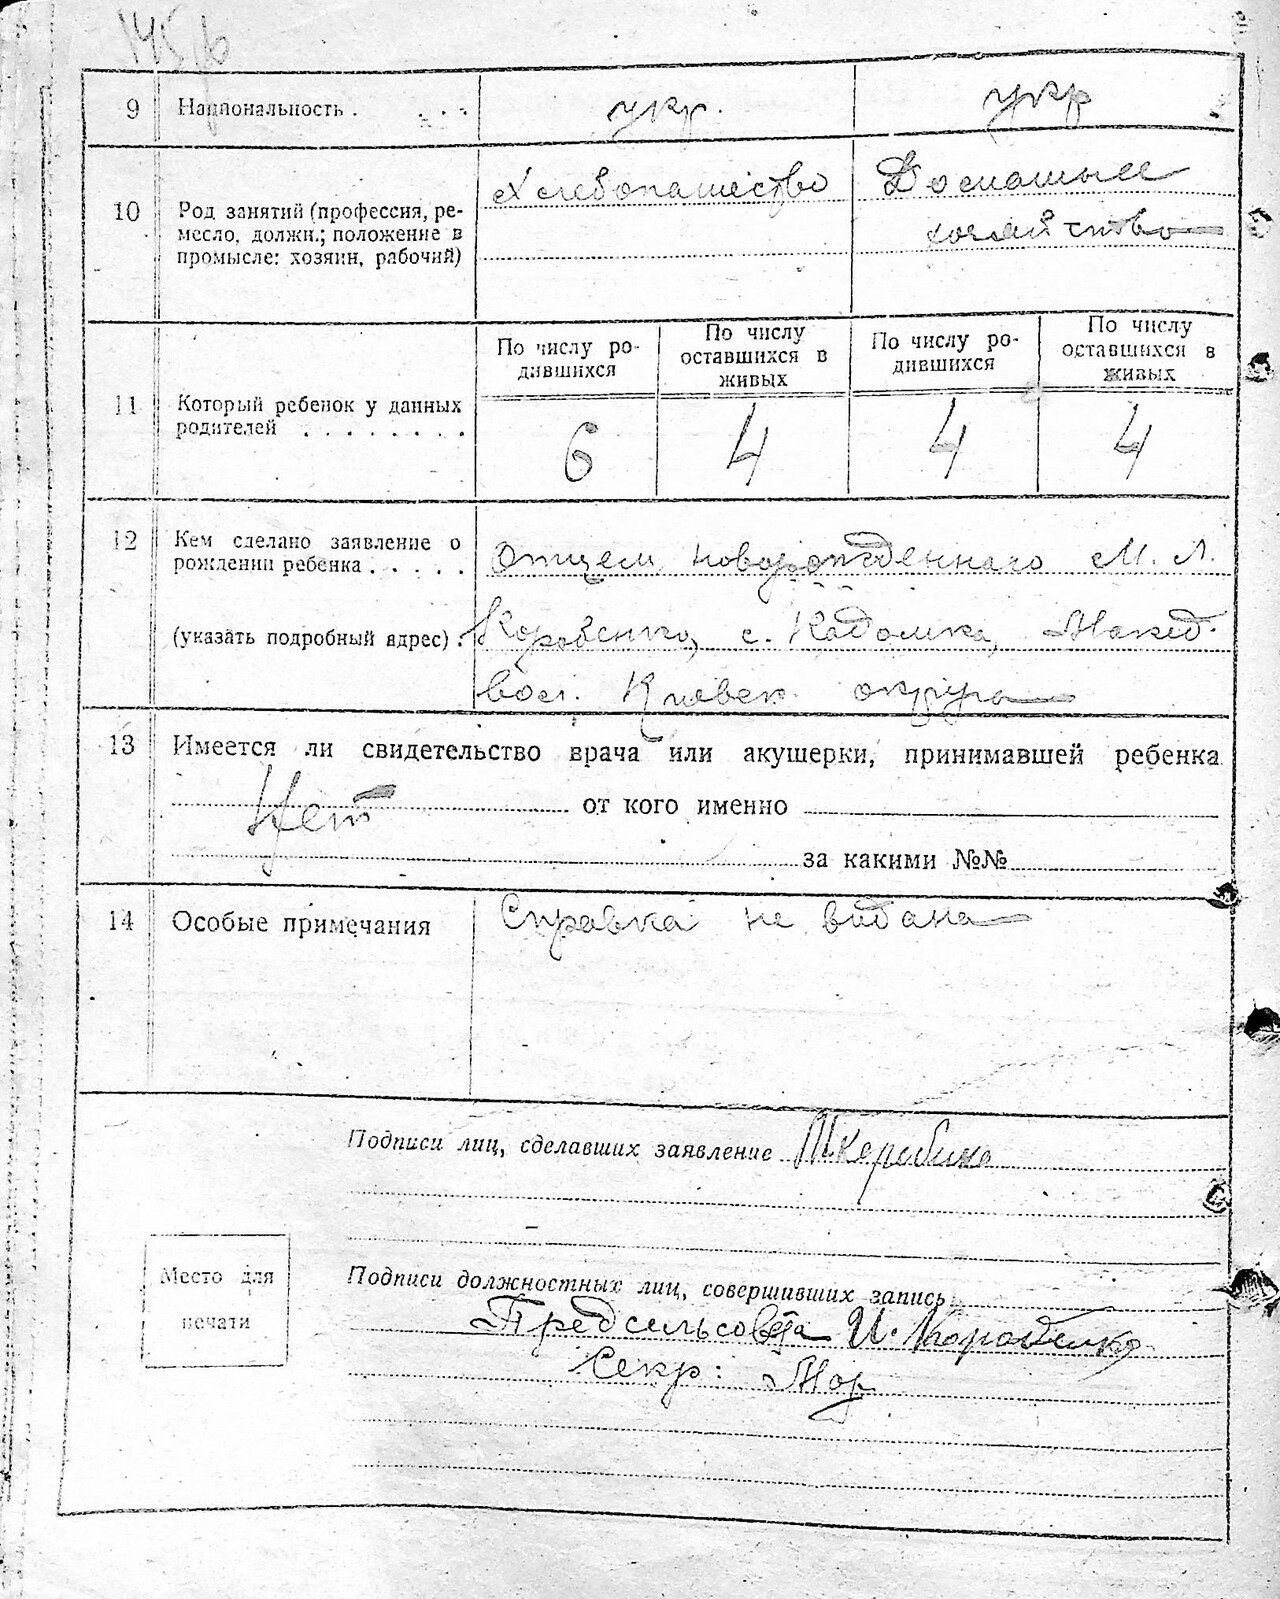 145
9 Национальность . . . . укр. укр
10 Род занятий (профессия, ре-
месло, должн.; положение в
промысле: хозяин, рабочий)
Хлебопашество
Домашнее
хозяйство
11 Который ребенок у данных
родителей . . . . . . . .
По числу ро-
дившихся
По числу
оставшихся в
живых
По числу ро-
дившихся
По числу
оставшихся в
живых
6 4 4 4
12 Кем сделано заявление о
рождении ребенка . . . . .
(указать подробный адрес) .
Отцем новорожденнаго М. Л.
Коробенко, с. Кадомка, Макед.
вол. Киевск. округа
13 Имеется ли свидетельство врача или акушерки, принимавшей ребенка
Нет от кого именно
за какими №№
14 Особые примечания Справка не видана
Подписи лиц, сделавших заявление
Место для
печати
Подписи должностных лиц, совершивших запись
Предсельсовета И. Коробенко
Секр: Мор